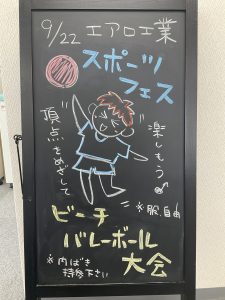 9/22 エアロ工業
スポーツ
フェス
頂点をめざして
楽しもう♪
※服自由
ビーチ
バレーボール
大会
※内ばき
持参下さい